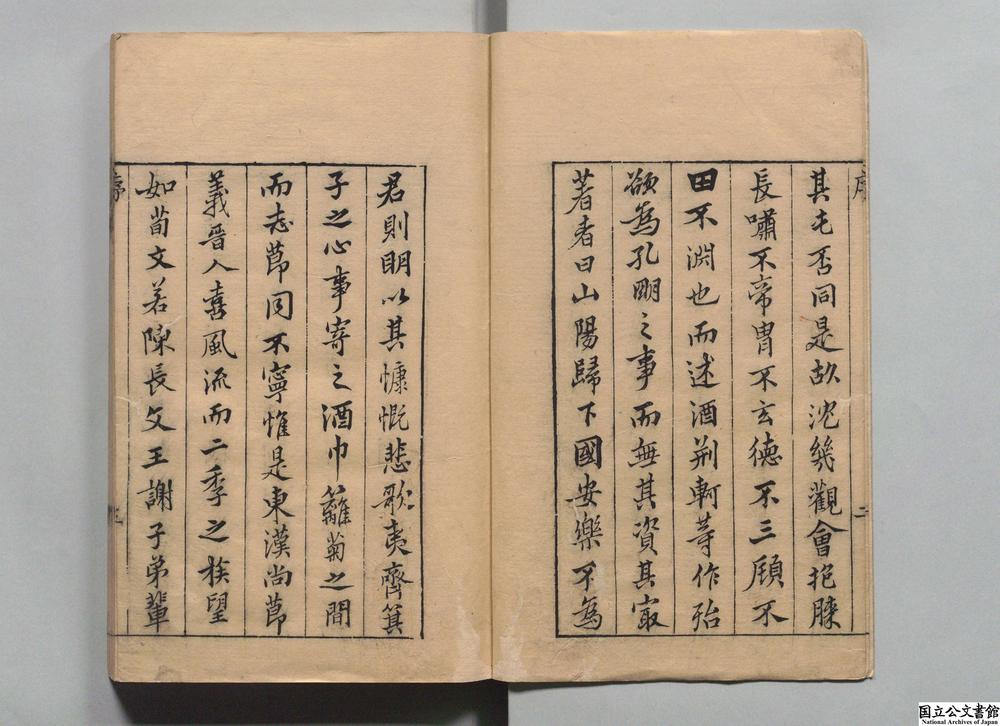 序
二
其屯否同是故沈幾觀會抱膝
長嘯不帝冑不玄德不三顧不
田不淵也而述酒荆軻等作殆
欲為孔明之事而無其資其寂
著者曰山陽歸下國安樂不為
君則明以其慷慨悲歌夷齊箕
子之心事寄之酒巾籬菊之間
而志節同不寧惟是東漢尚節
義晉人喜風流而二季之族望
如荀文若陳長文王謝子弟輩
序
三
国立公文書館
National Archives of Japan